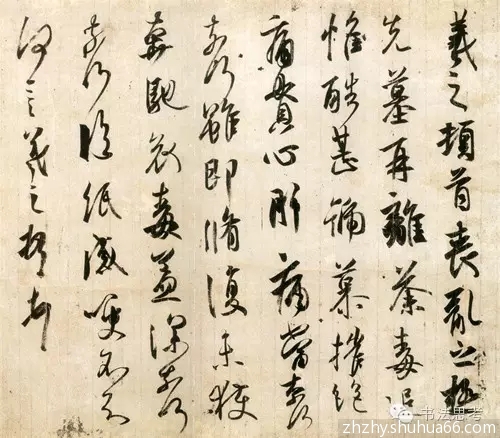 羲之頓首喪亂之極
先墓再離荼毒追
惟酷甚號慕摧絕
痛貫心肝痛當奈何
奈何雖即脩復未獲
奔馳哀毒益深奈何
奈何臨紙感哽不知
何言羲之頓首
书法思考
zhzhy.shuhua66.com